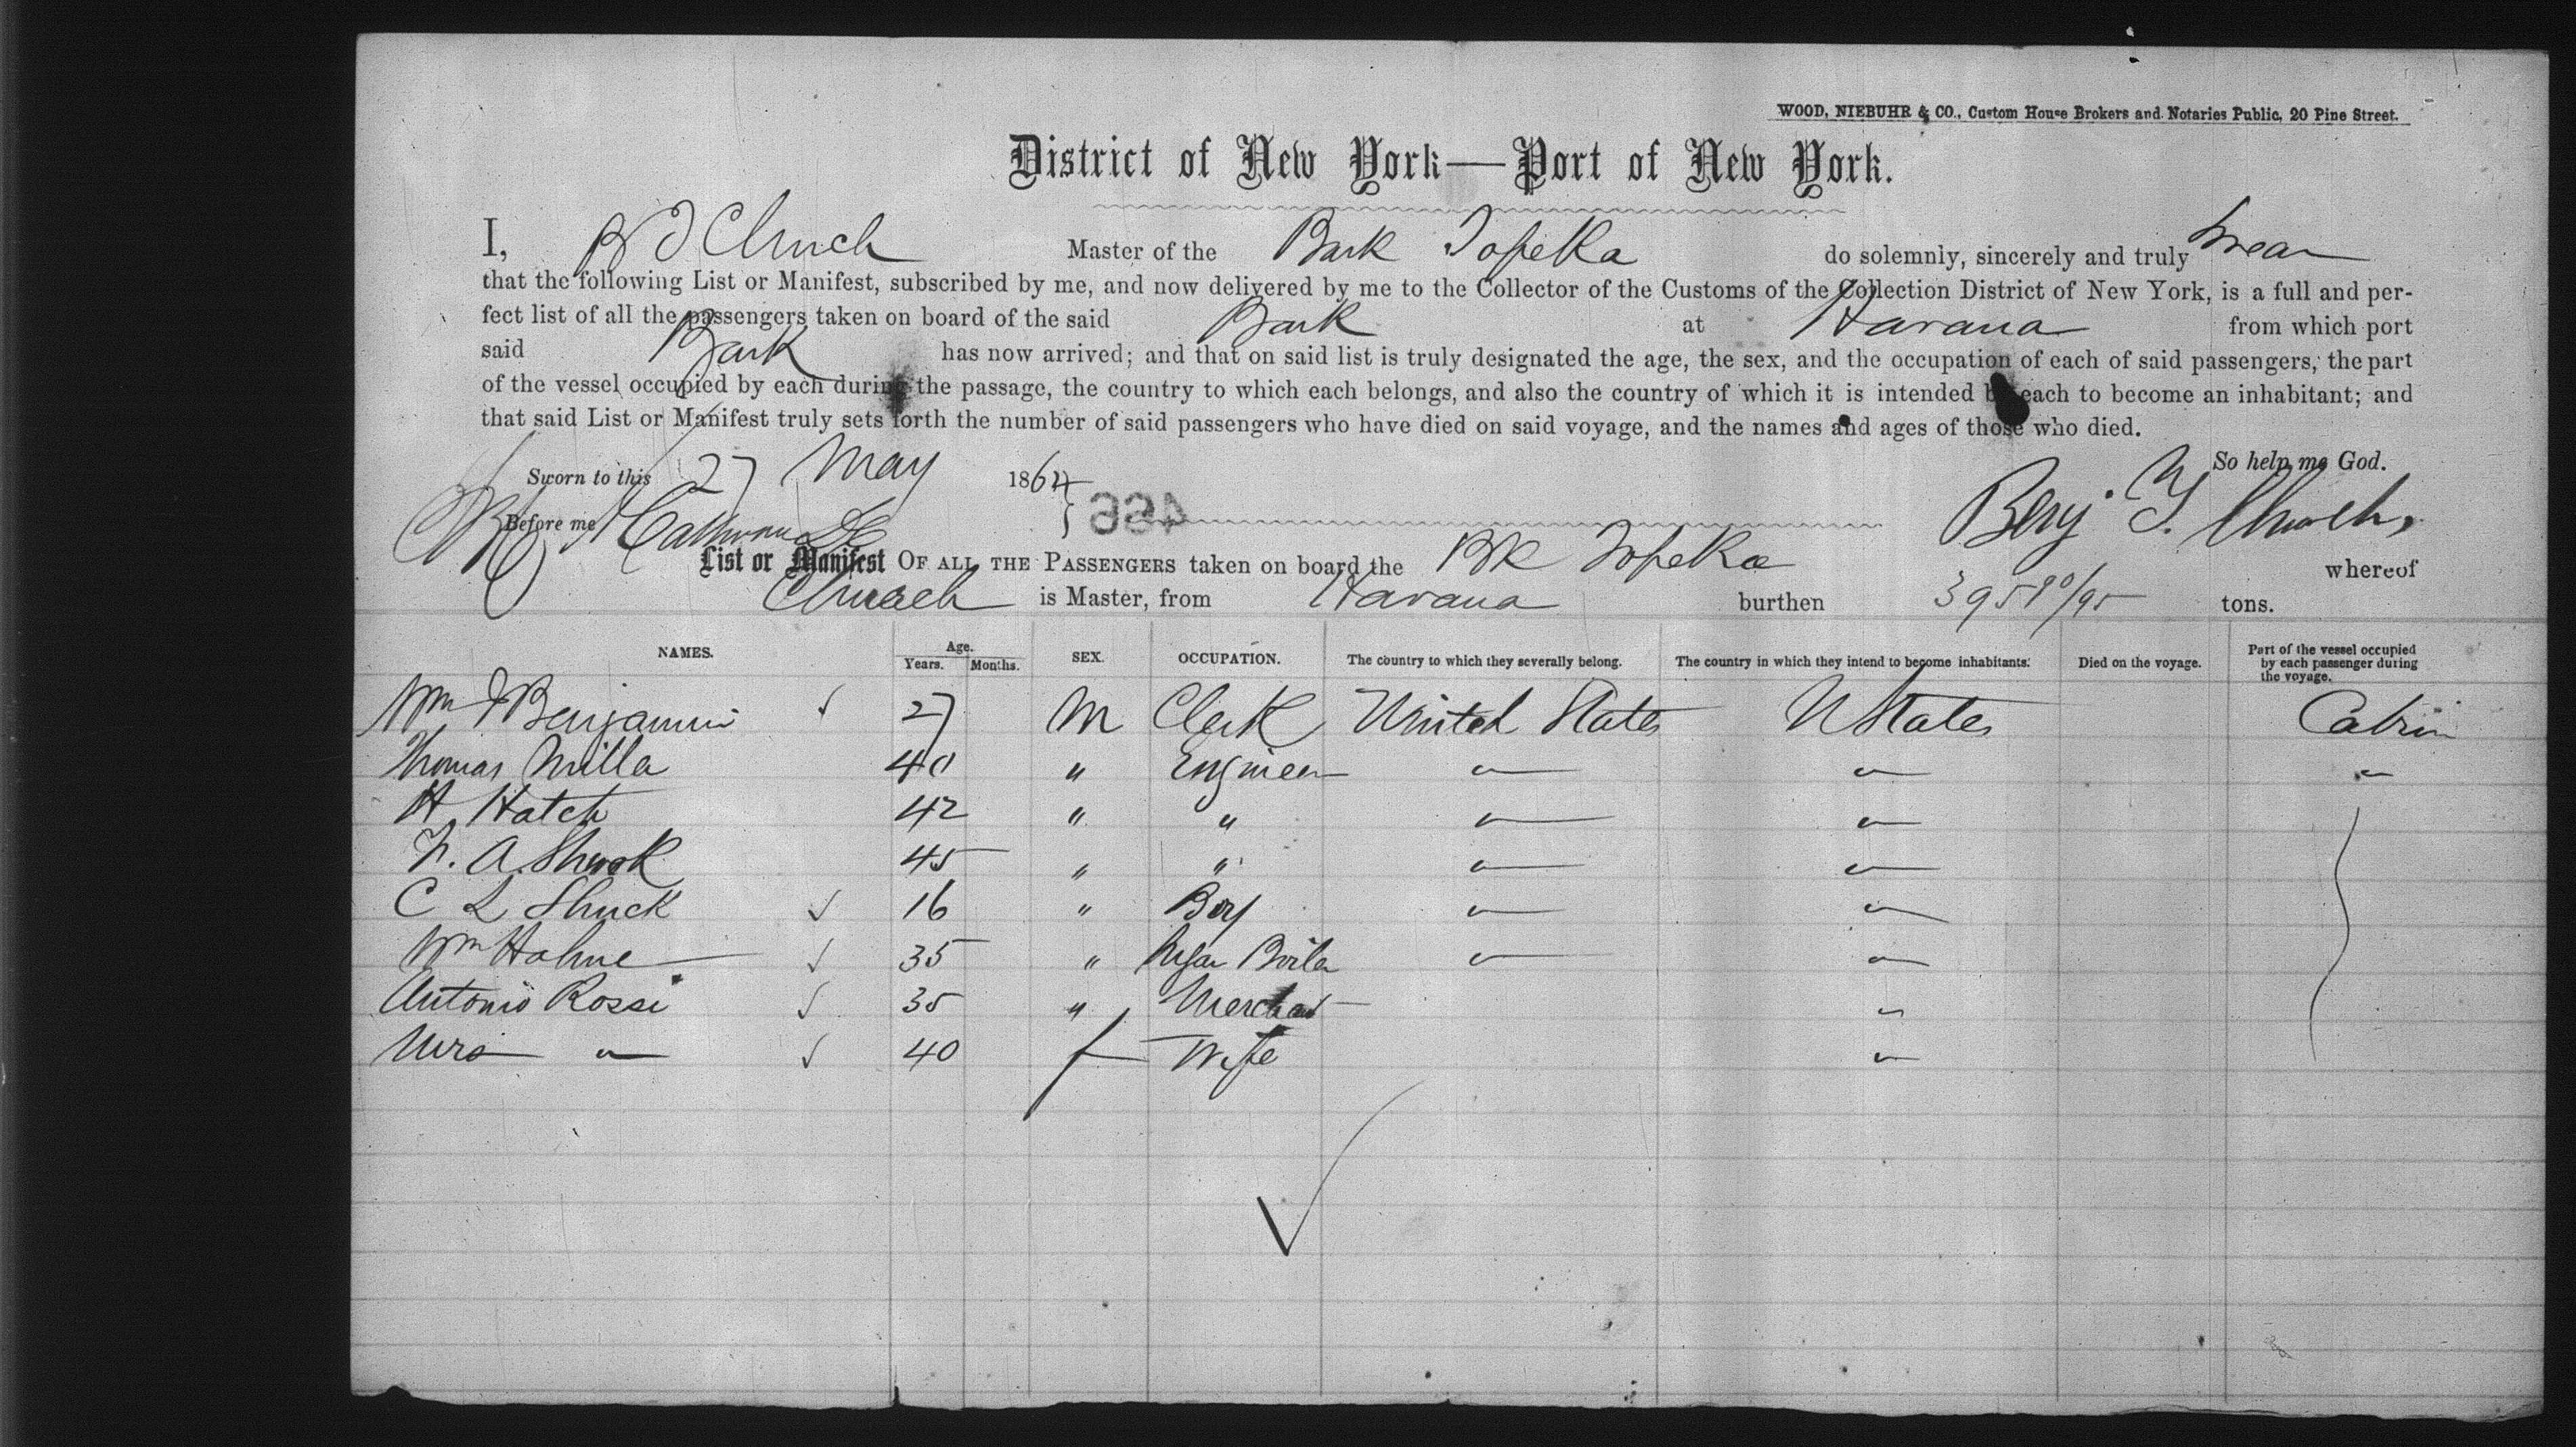 WOOD, NIEBUHR & CO., Custom House Brokers and Notaries Public, 20 Pine Street.
District of New York—Port of New York.
I, B Church Master of the Bark Topeka do solemnly, sincerely and truly swear
that the following List or Manifest, subscribed by me, and now delivered by me to the Collector of the Customs of the Collection District of New York, is a full and per-
fect list of all the passengers taken on board of the said Bark at Havana from which port
said Bark has now arrived; and that on said list is truly designated the age, the sex, and the occupation of each of said passengers, the part
of the vessel occupied by each during the passage, the country to which each belongs, and also the country of which it is intended by each to become an inhabitant; and
that said List or Manifest truly sets forth the number of said passengers who have died on said voyage, and the names and ages of those who died.
So help me God.
Sworn to this 27 May 1864
Before me
Benj Y. Church,
List or Manifest OF ALL THE PASSENGERS taken on board the Bk Topeka whereof
Church is Master, from Havana burthen 395 90/95 tons.
NAMES. Age. Years. Months. SEX. OCCUPATION. The country to which they severally belong. The country in which they intend to become inhabitants. Died on the voyage. Part of the vessel occupied by each passenger during the voyage.
Wm Benjamin 27 M Clerk United States U States Cabin
Thomas Miller 40 " Engineer " " "
H Hatch 42 " " " "
A. Shuck 45 " " " "
C L Shuck 16 " Boy " "
Wm Hahne 35 " Sugar Boiler " "
Antonio Rossi 35 " Merchant "
Mrs " 40 f Wife "